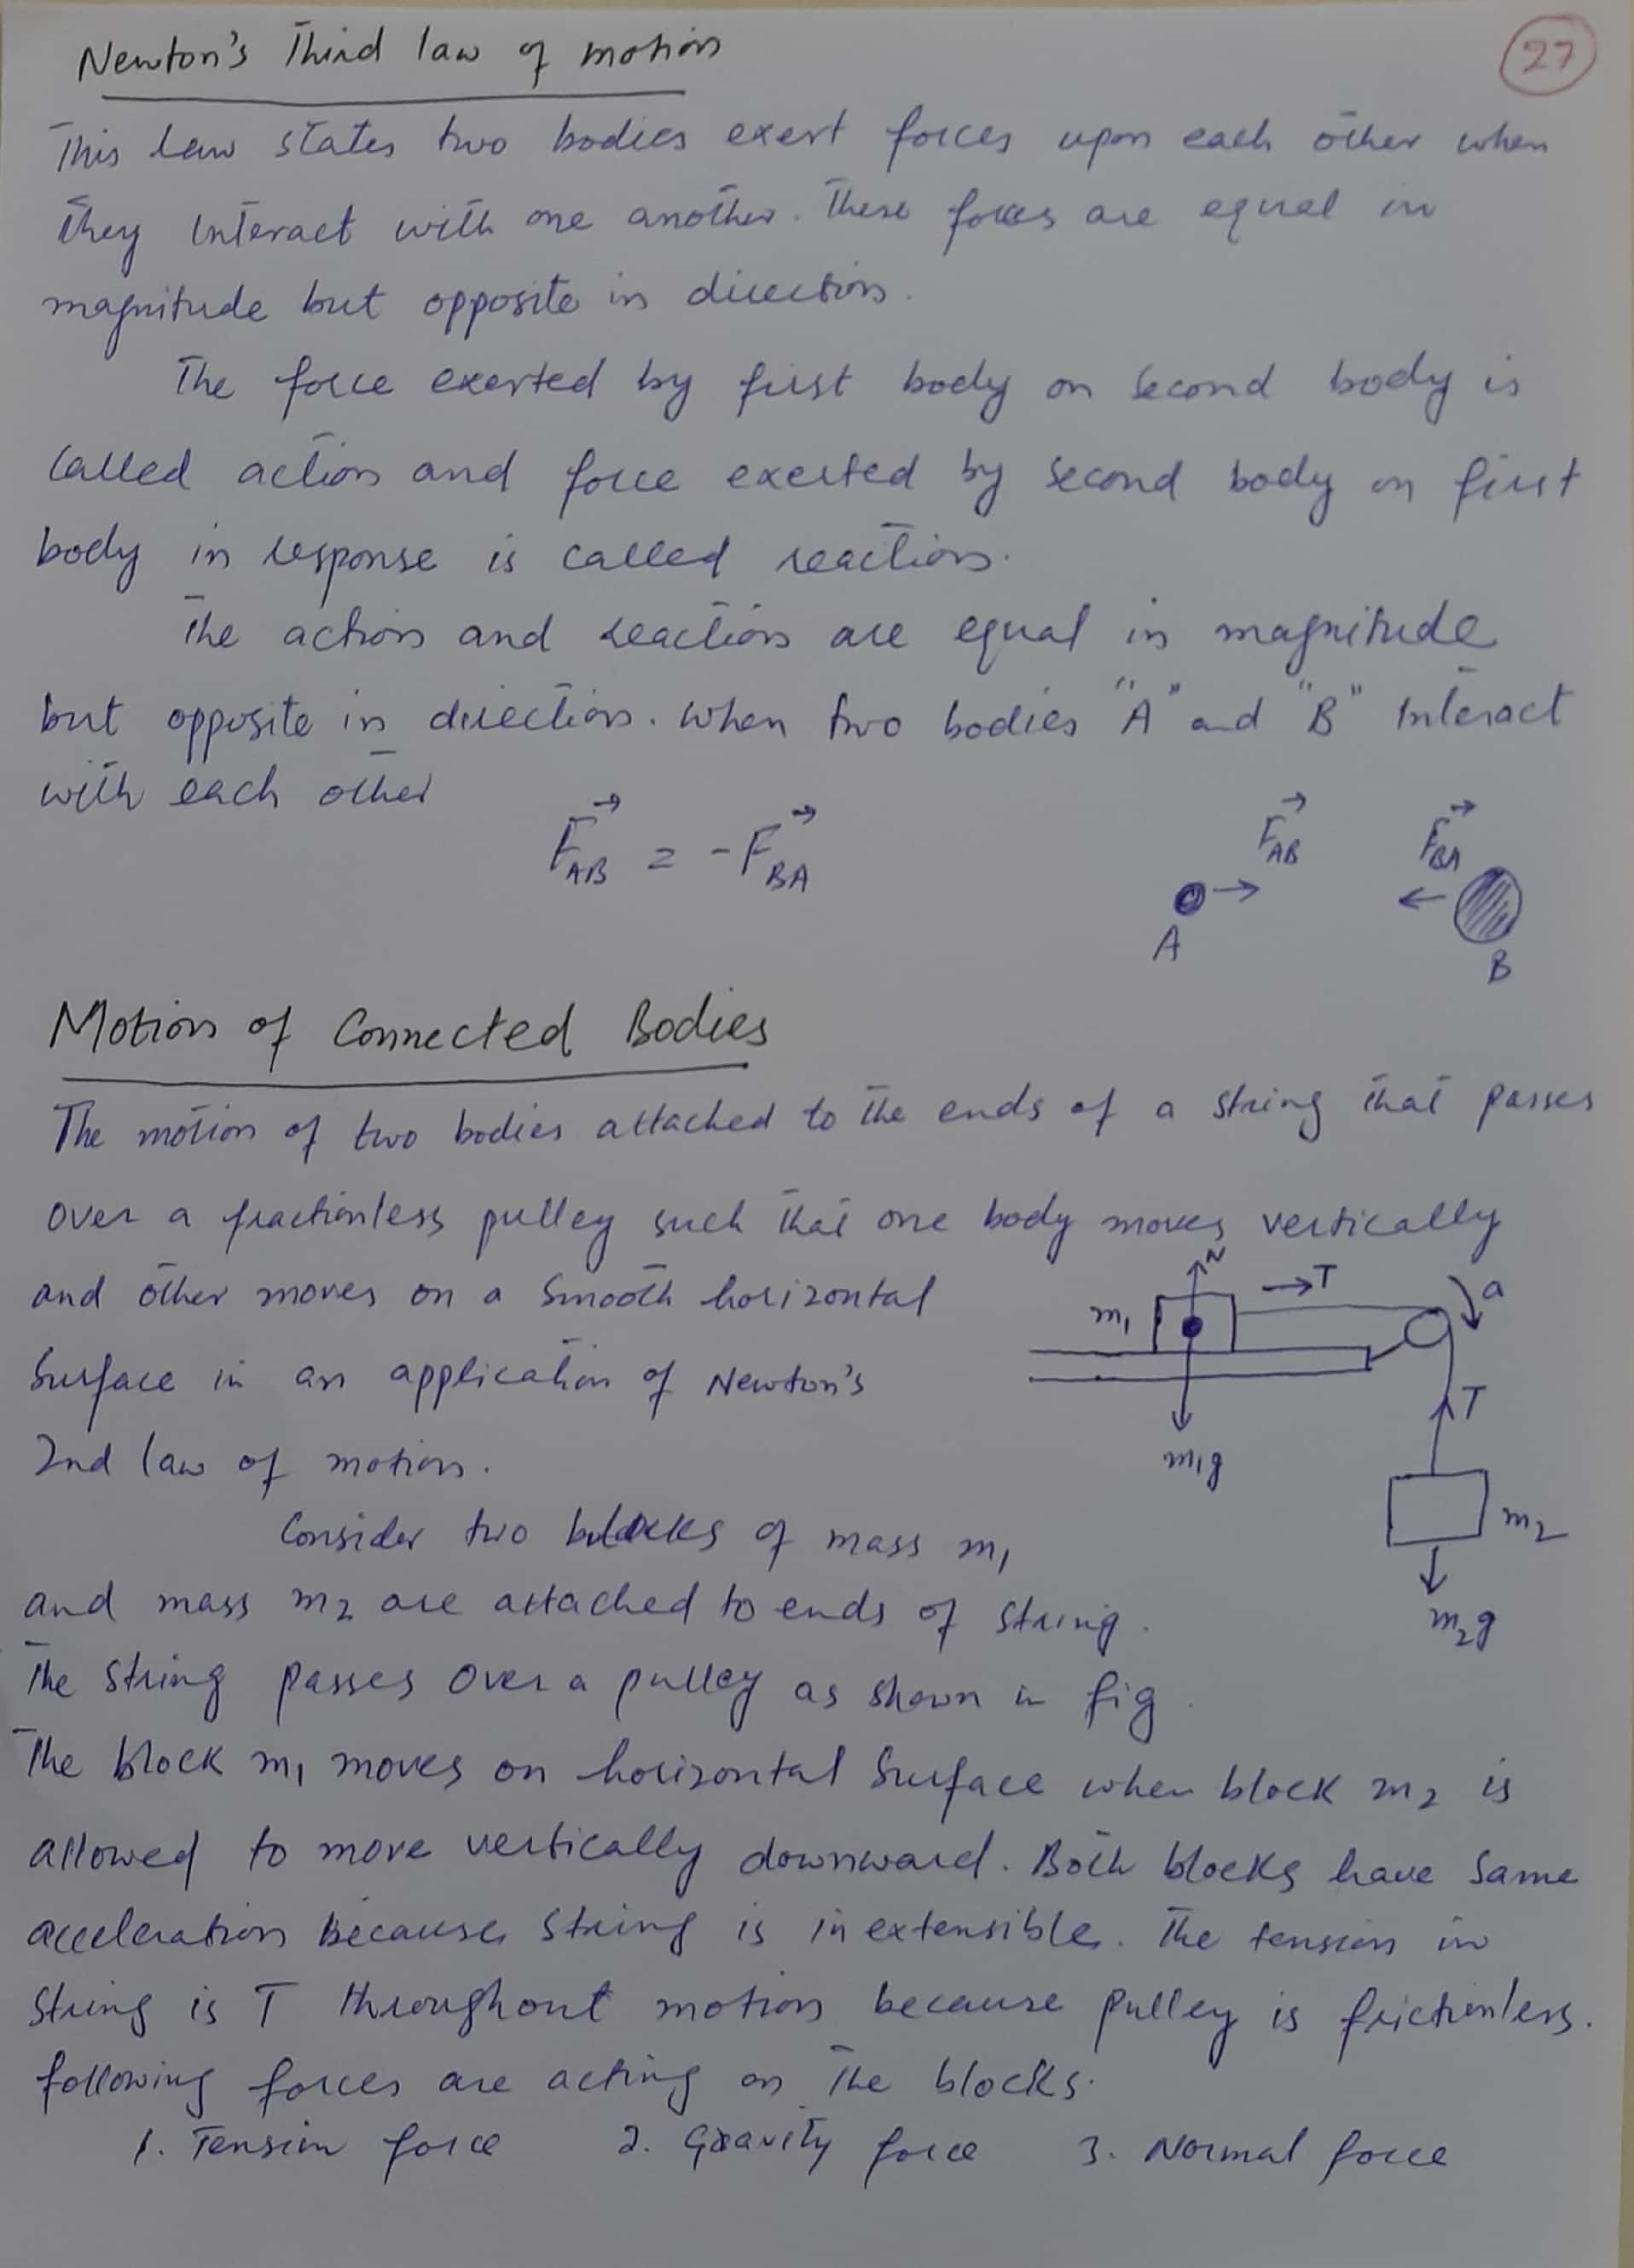 Newton's Third law of motion
27
This law states two bodies exert forces upon each other when
they Interact with one another. These forces are equal in
magnitude but opposite in direction.
The force exerted by first body on Second body is
Called action and force exerted by second body on first
body in response is called reaction.
The action and reaction are equal in magnitude
but opposite in direction. When two bodies "A" and "B" Interact
with each other
F⃗AB = -F⃗BA
F⃗AB F⃗BA
A
B
Motion of Connected Bodies
The motion of two bodies attached to the ends of a string that passes
over a fractionless pulley such that one body moves vertically
and other moves on a Smooth horizontal
Surface in an application of Newton's
2nd law of motion.
N
T
a
m1
T
m1g
m2
m2g
Consider two blocks of mass m1
and mass m2 are attached to ends of string.
The string passes over a pulley as shown in fig.
The block m1 moves on horizontal Surface when block m2 is
allowed to move vertically downward. Both blocks have Same
acceleration because string is inextensible. The tension in
string is T throughout motion because pulley is frictionless.
following forces are acting on the blocks.
1. Tension force 2. Gravity force 3. Normal force